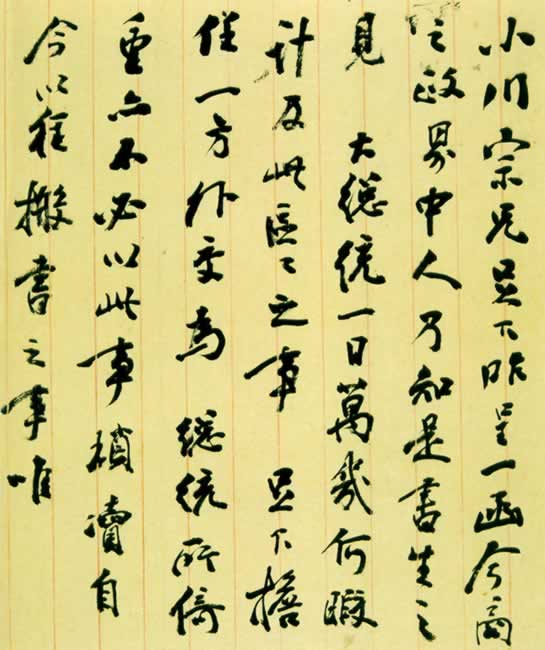 小川宗兄足下昨呈一函今商
之政界中人乃知是書生之
見 大總統一日萬幾何暇
計及此區々之事 足下擔
任一方外交為 總統所倚
重亦不必以此事瀆瀆自
今以往搬書之事唯